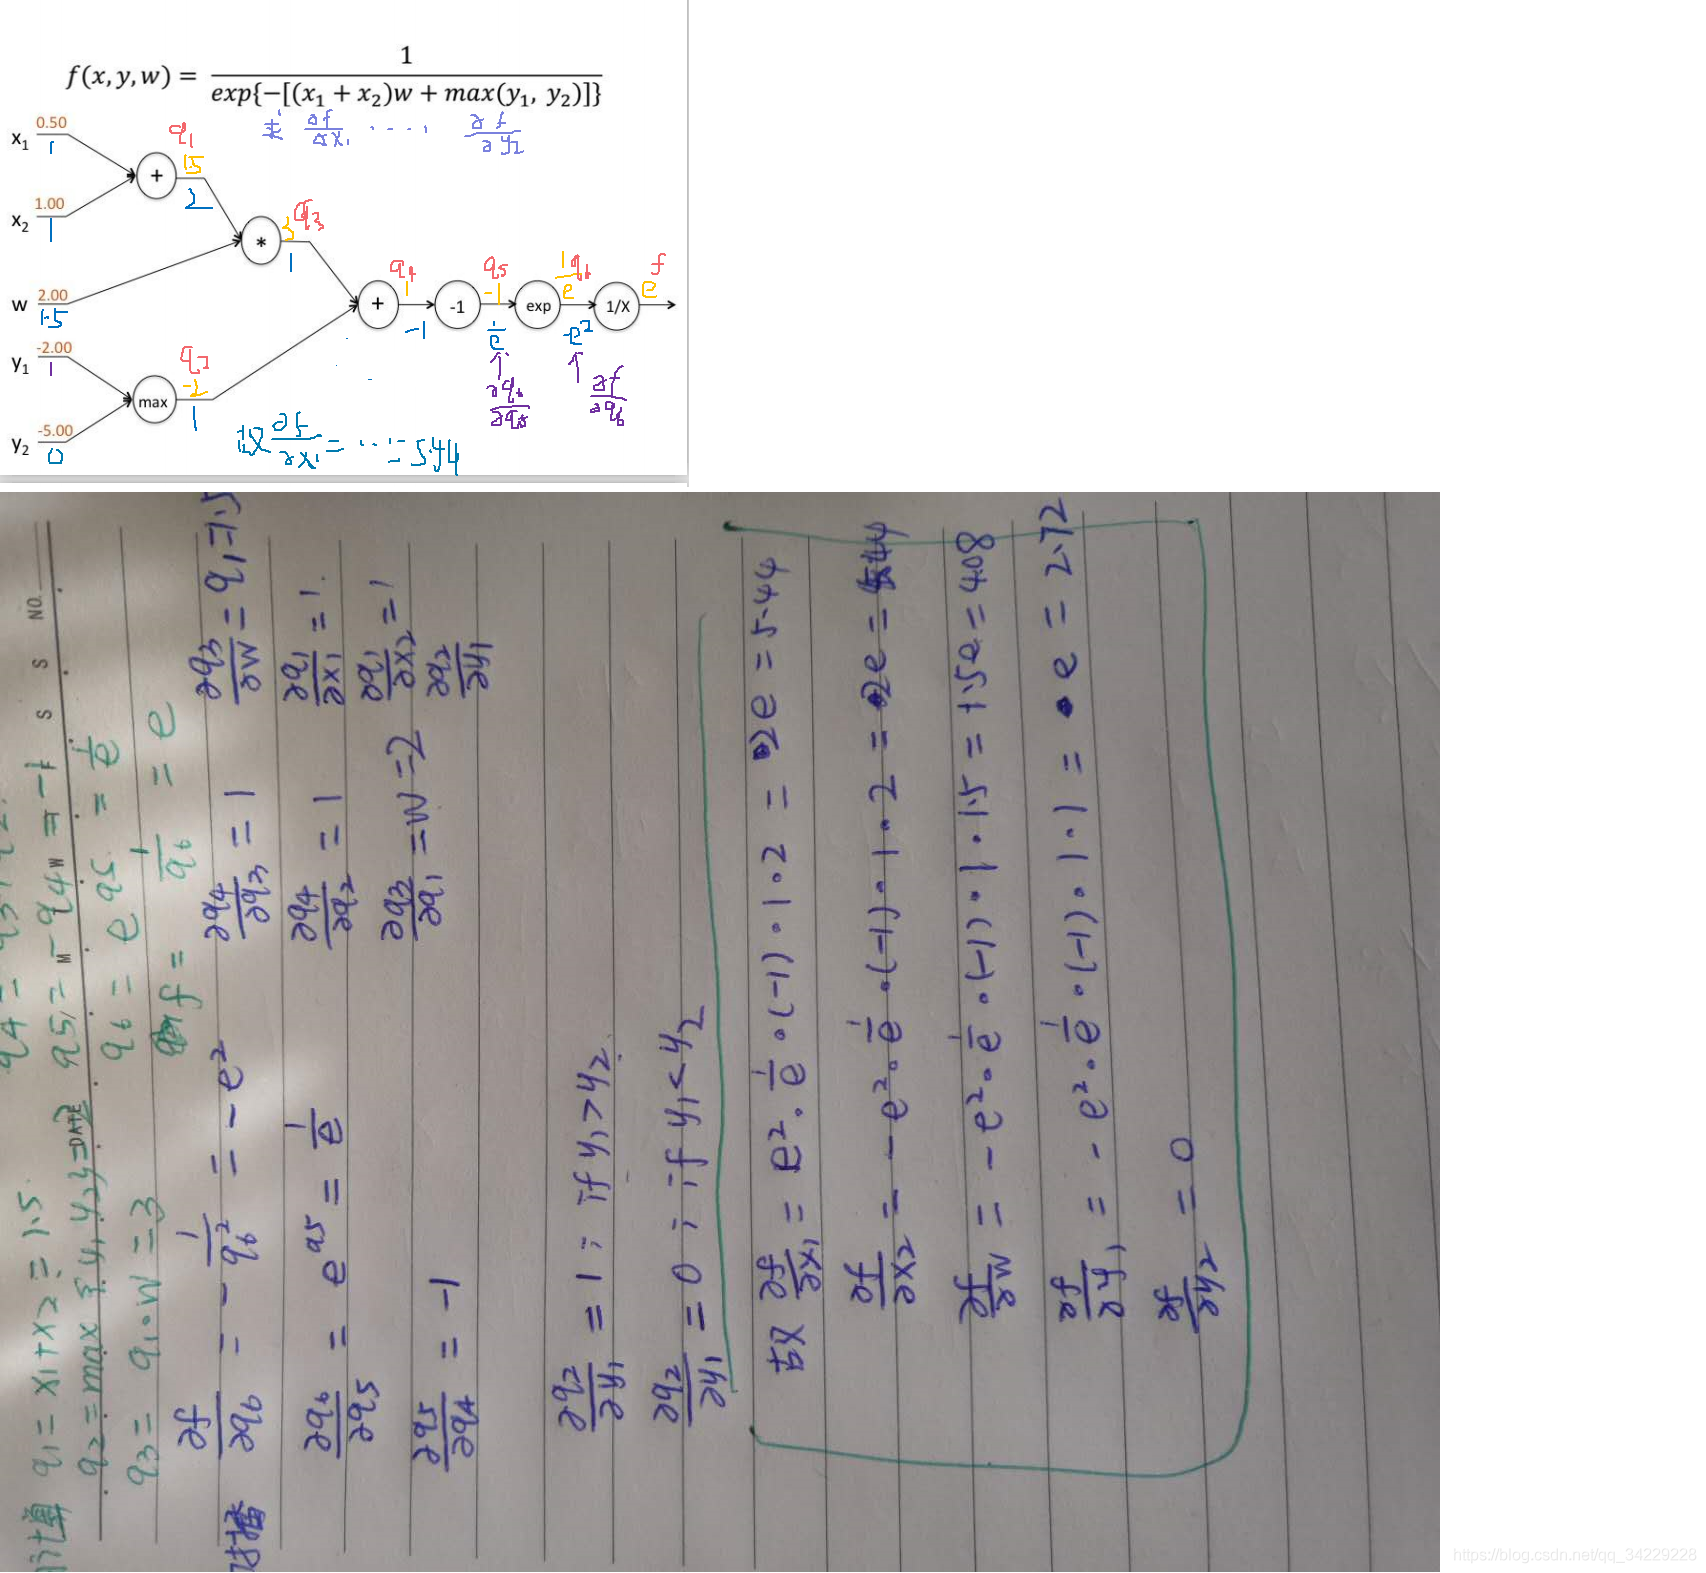 f(x, y, w) = 1 / exp{−[(x₁ + x₂)w + max(y₁, y₂)]}
求 ∂f/∂x₁ ····· ∂f/∂y₂
x₁ 0.50 1
x₂ 1.00 1
w 2.00 1.5
y₁ -2.00 1
y₂ -5.00 0
+ q₁ 1.5 2
* q₃ 3 1
max q₂ -2 1
+ q₄ 1 -1
-1 q₅ -1 1/e
exp q₆ 1/e -e²
1/X f e
∂q₆/∂q₅
∂f/∂q₆
故 ∂f/∂x₁ = ··· = 5.44
计算 q₁ = x₁+x₂ = 1.5
q₂ = max{y₁,y₂}
q₃ = q₁·w = 3
q₅ = -q₄ = -1
q₆ = e^q₅ = 1/e
f = 1/q₆ = e
NO.
DATE
M W F S S
∂f/∂q₆ = -1/q₆² = -e²
∂q₄/∂q₃ = 1
∂q₃/∂w = q₁ = 1.5
∂q₆/∂q₅ = e^q₅ = 1/e
∂q₄/∂q₂ = 1
∂q₁/∂x₁ = 1.
∂q₅/∂q₄ = -1
∂q₃/∂q₁ = w = 2
∂q₁/∂x₂ = 1
∂q₂/∂y₁
∂q₂/∂y₁ = 1 ; if y₁>y₂.
∂q₂/∂y₁ = 0 ; if y₁<y₂
故 ∂f/∂x₁ = e²·1/e·(-1)·1·2 = 2e = 5.44
∂f/∂x₂ = -e²·1/e·(-1)·1·2 = 2e = 5.44
∂f/∂w = -e²·1/e·(-1)·1·1.5 = 1.5e = 4.08
∂f/∂y₁ = -e²·1/e·(-1)·1·1 = e = 2.72
∂f/∂y₂ = 0
https://blog.csdn.net/qq_34229228